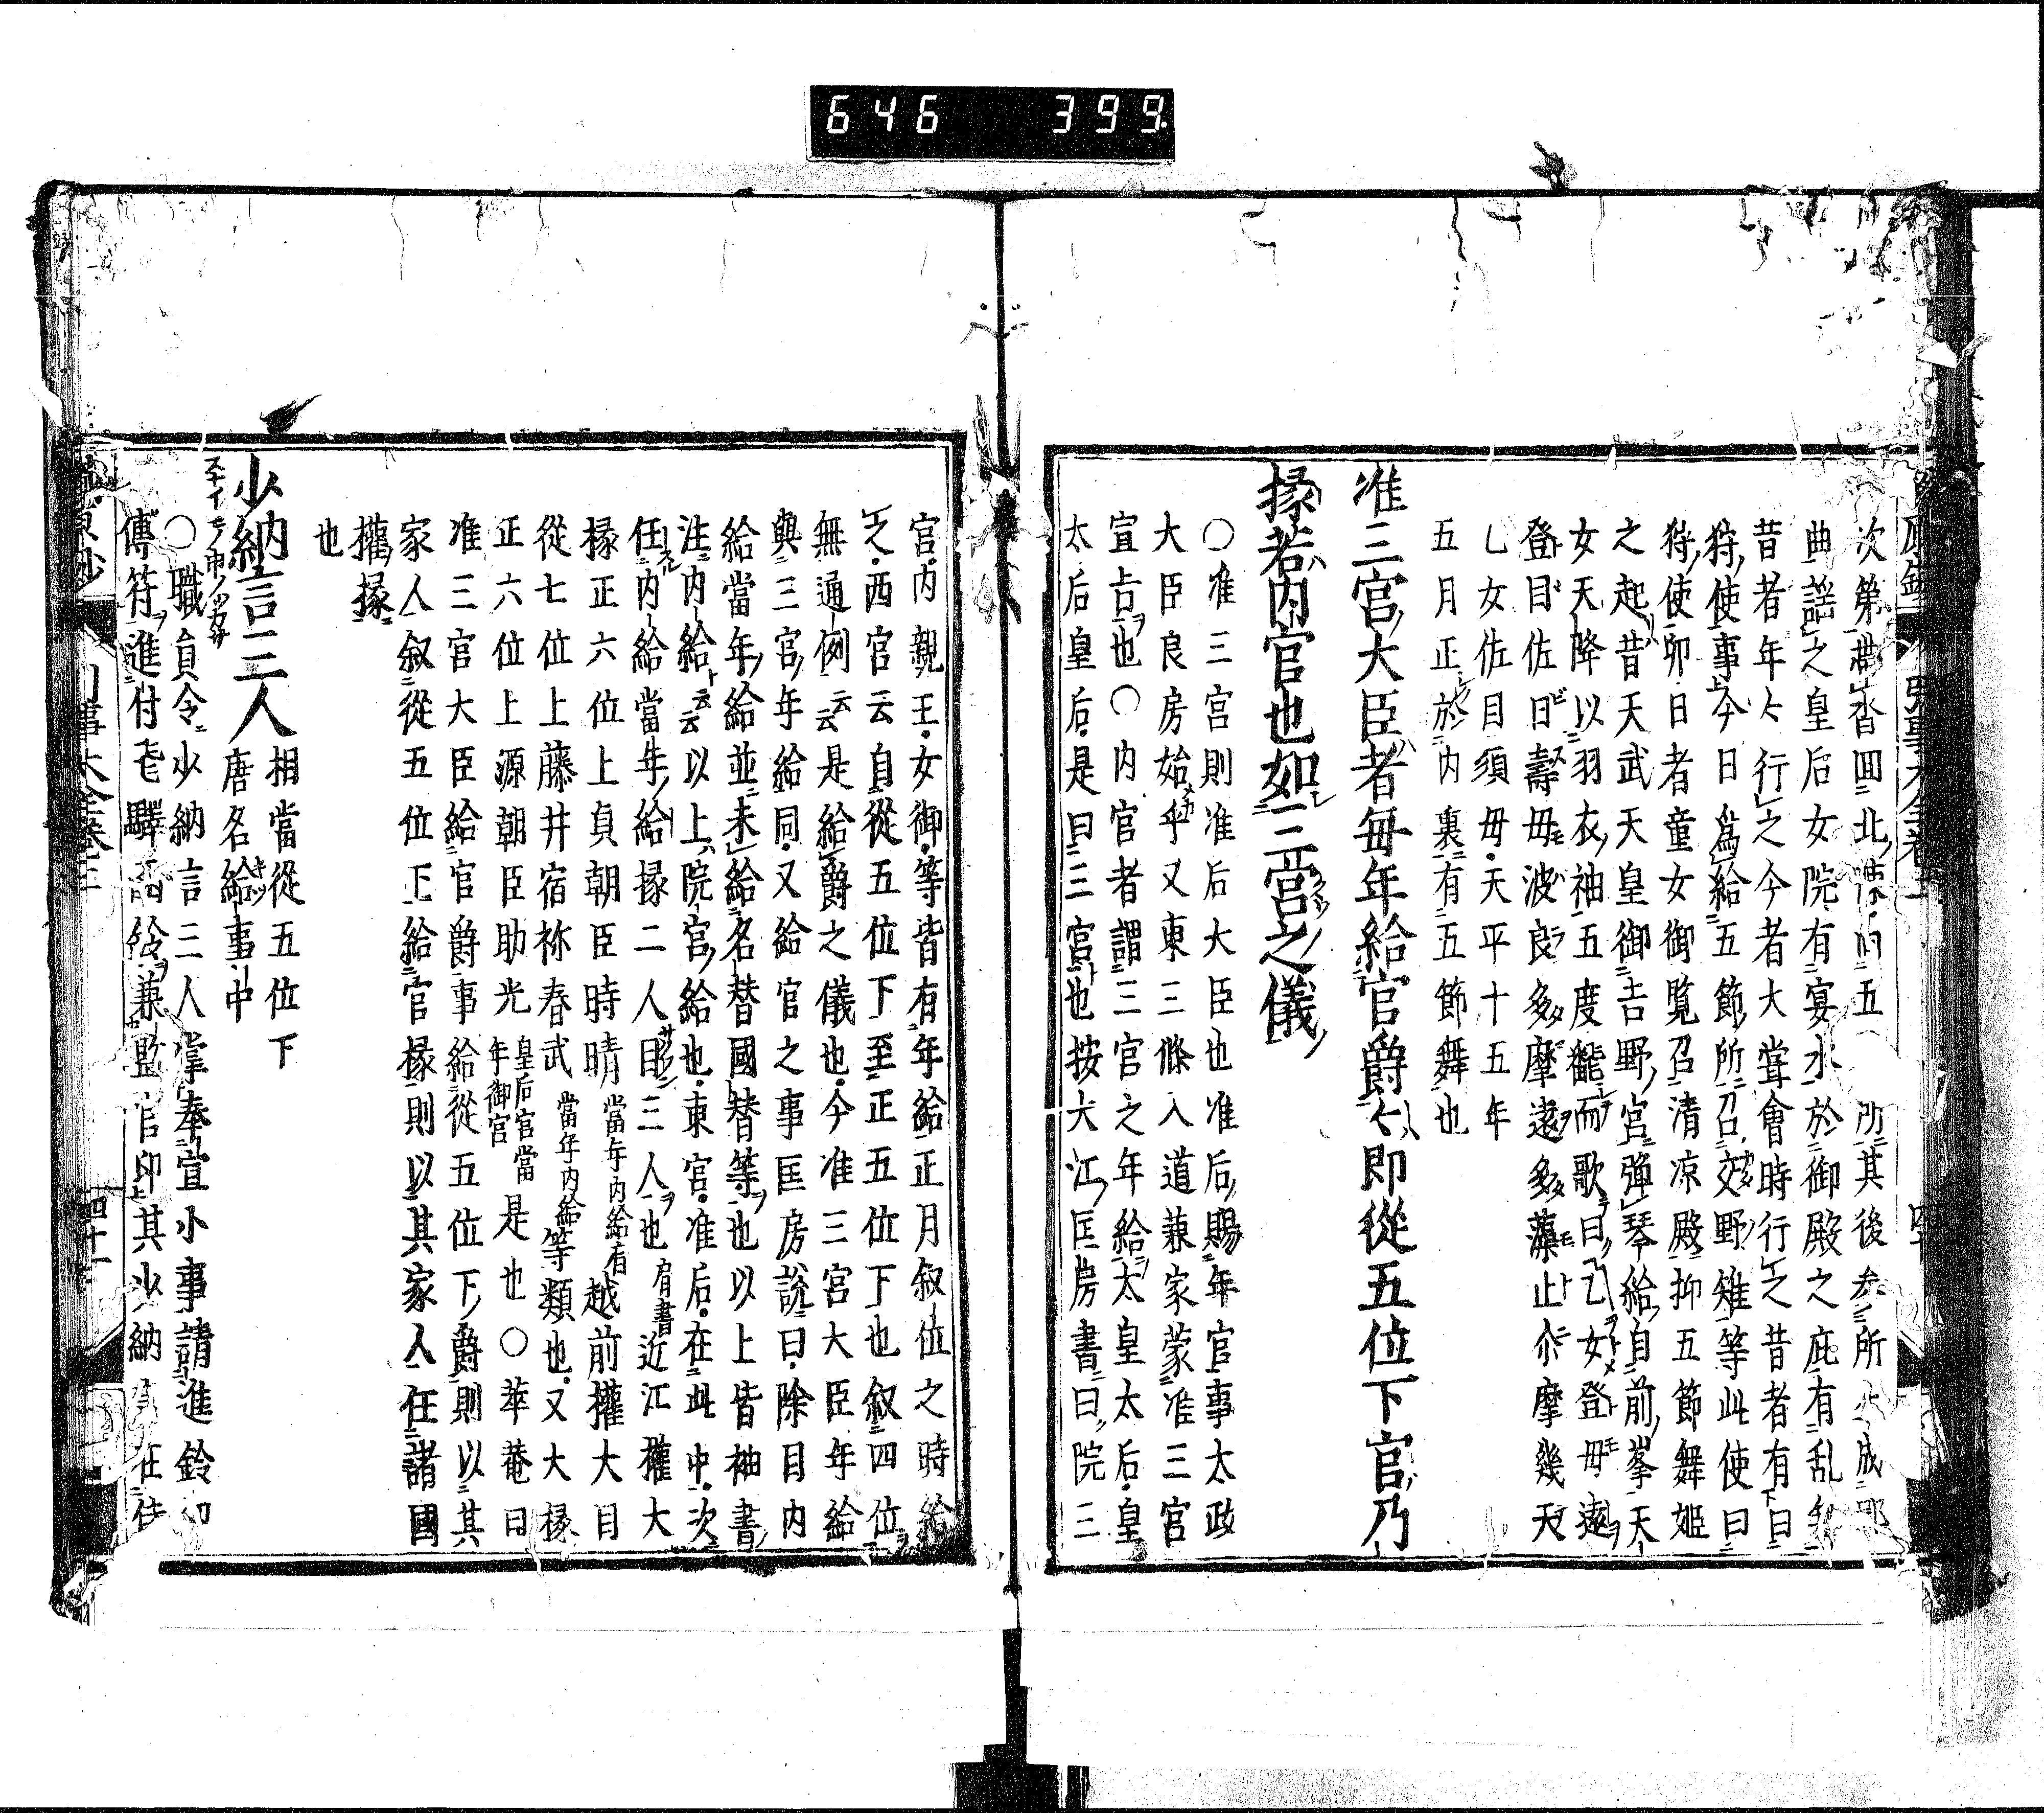 646 399
次第準沓回北 五 所其後参所 成
曲謡之皇后女院有宴水於御殿之庇有乱
昔者年々行之今者大甞會時行之昔者有曰
狩使事今日為給五節所召交野雉等此使曰
狩使卯日者童女御覧召清凉殿抑五節舞姫
之起昔天武天皇御吉野宮弾琴給自前峯天
女天降以羽衣袖五度飜而歌曰乙女登毋遠
登目佐日壽毋波良多摩遠多藻止尒摩幾天
乚女佐目須毋天平十五年
五月正於内裏有五節舞也
准三宮大臣者毎年給官爵々即從五位下官乃
掾若内官也如三宮之儀
〇准三宮則准后大臣也准后賜年官事太政
大臣良房始乎又東三條入道兼家蒙准三宮
宣旨也〇内官者謂三宮之年給太皇太后皇
太后皇后是曰三宮也按大江匡房書曰院三
官内親王女御等皆有年給正月叙位之時給
之西宮云自從五位下至正五位下也叙四位
無通例云云是給爵之儀也今准三宮大臣年給
與三宮年給同又給官之事匡房説曰除目内
給當年給並未給名替國替等也以上皆袖書
注内給云云以上院宮給也東宮准后在此中次
任内給當年給掾二人目三人也有書近江權大
掾正六位上貞朝臣時晴當年内給有越前權大目
從七位上藤井宿祢春武當年内給等類也又大掾
正六位上源朝臣助光皇后宮當年御官是也〇華菴曰
准三宮大臣給官爵事給從五位下爵則以其
家人叙從五位下給官掾則以其家人任諸國
權掾
也
少納言三人
相當從五位下
唐名給事中
スナイモノ申ノツカサ
〇職員令少納言三人掌奉宣小事請進鈴印
傳符進付飛驛函鈴兼監官印其少納言在侍
四十一